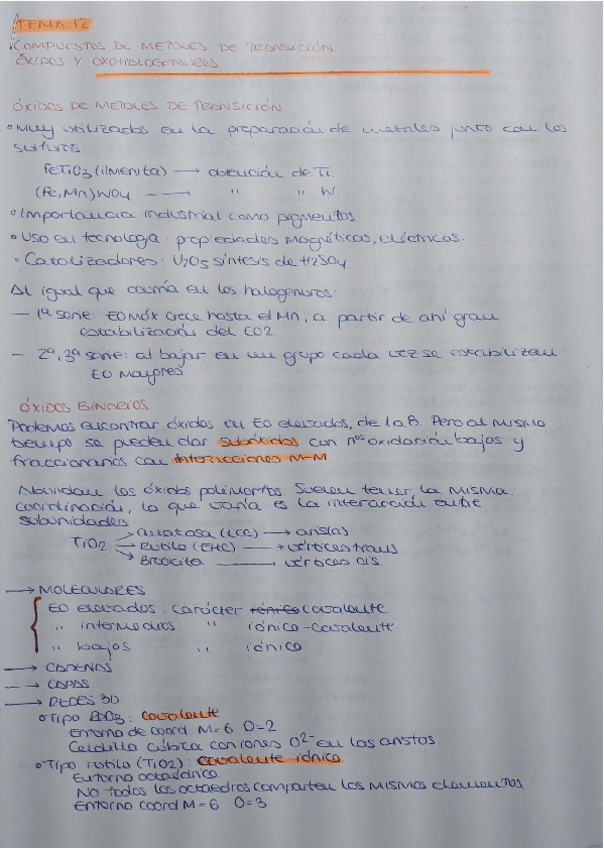 TEMA 12
COMPUESTOS DE METALES DE TRANSICIÓN
ÓXIDOS Y OXOHALOGENUROS
ÓXIDOS DE METALES DE TRANSICIÓN
• Muy utilizados en la preparación de metales junto con los
sulfuros
FeTiO3 (ilmenita) → obtención de Ti
(Fe,Mn)WO4 → " " W.
• Importancia industrial como pigmentos
• Uso en tecnología: propiedades magnéticas, eléctricas.
• Catalizadores: V2O5 síntesis de H2SO4.
Al igual que ocurría en los halogenuros:
— 1ª serie: EO máx crece hasta el Mn, a partir de ahí gran
estabilización del EO 2.
— 2ª, 3ª serie: al bajar en un grupo cada vez se estabilizan
EO mayores
ÓXIDOS BINARIOS
Podemos encontrar óxidos en EO elevados, de 1 a 8. Pero al mismo
tiempo se pueden dar subóxidos con nos oxidación bajos y
fraccionarios con interacciones M-M
Abundan los óxidos polimorfos. Suelen tener la misma
coordinación, lo que varía es la interacción entre
subunidades
anatasa (ECC) → aristas
TiO2 → Rutilo (EHC) → vértices trans
Brookita → vértices cis.
→ MOLECULARES
EO elevados: carácter covalente
" intermedios: " iónico-covalente
" bajos " iónico
→ CADENAS
→ CAPAS
→ REDES 3D
• Tipo ReO3: covalente
Entorno de coord M=6 O=2
Celdilla cúbica con iones O2- en las aristas.
• Tipo rutilo (TiO2): covalente iónico
Entorno octaédrico
No todos los octaedros comparten los mismos elementos
Entorno coord M=6 O=3